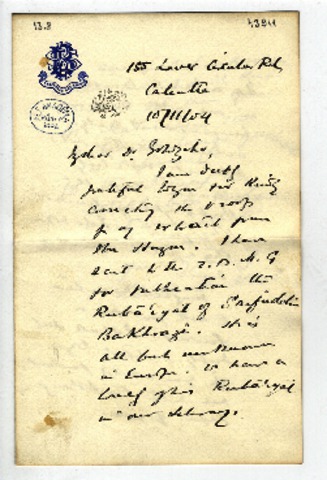 43.8
43811
155 Lower Circular Rd,
Calcutta
10/11/04
My dear Dr. Goldziher,
I am deeply
grateful to you for kindly
correcting the proofs
of my extract from
Ibn Hazm. I have
sent to the Z. D. M. G
for publication the
Rubā'iyat of Saifuddin
Bakharzi. He is
all but unknown
in Europe. We have a
copy of his Rubā'iyat
in our library.